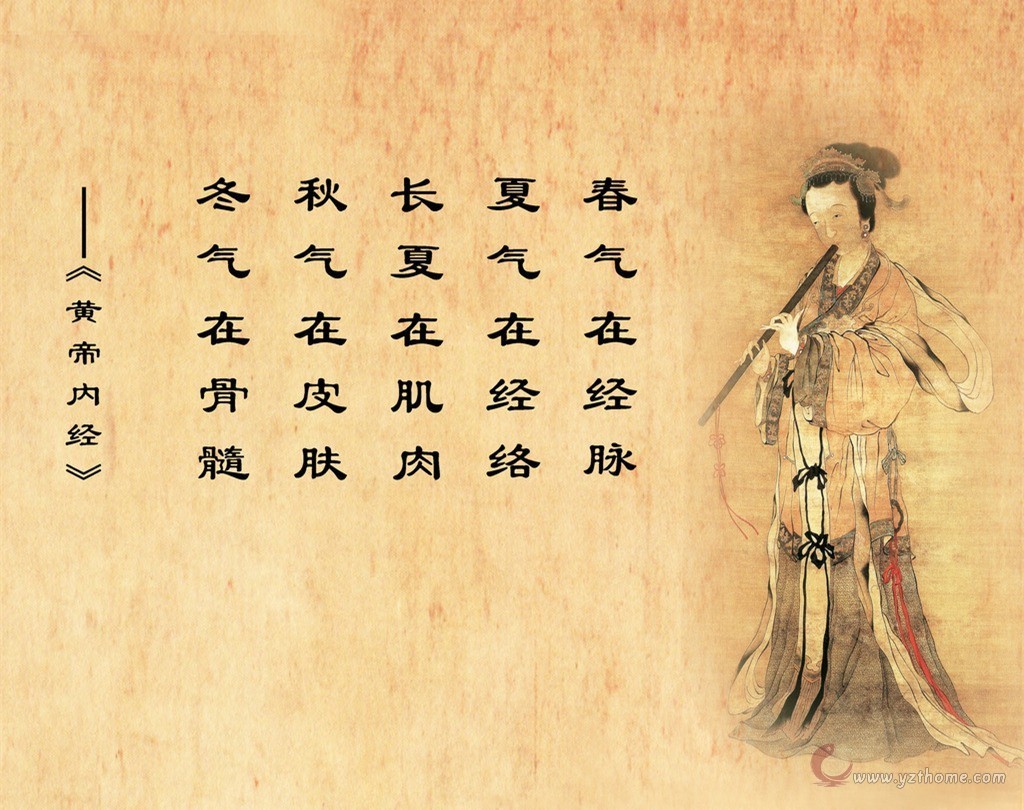 春气在经脉
夏气在经络
长夏在肌肉
秋气在皮肤
冬气在骨髓
——《黄帝内经》
www.yzthome.com